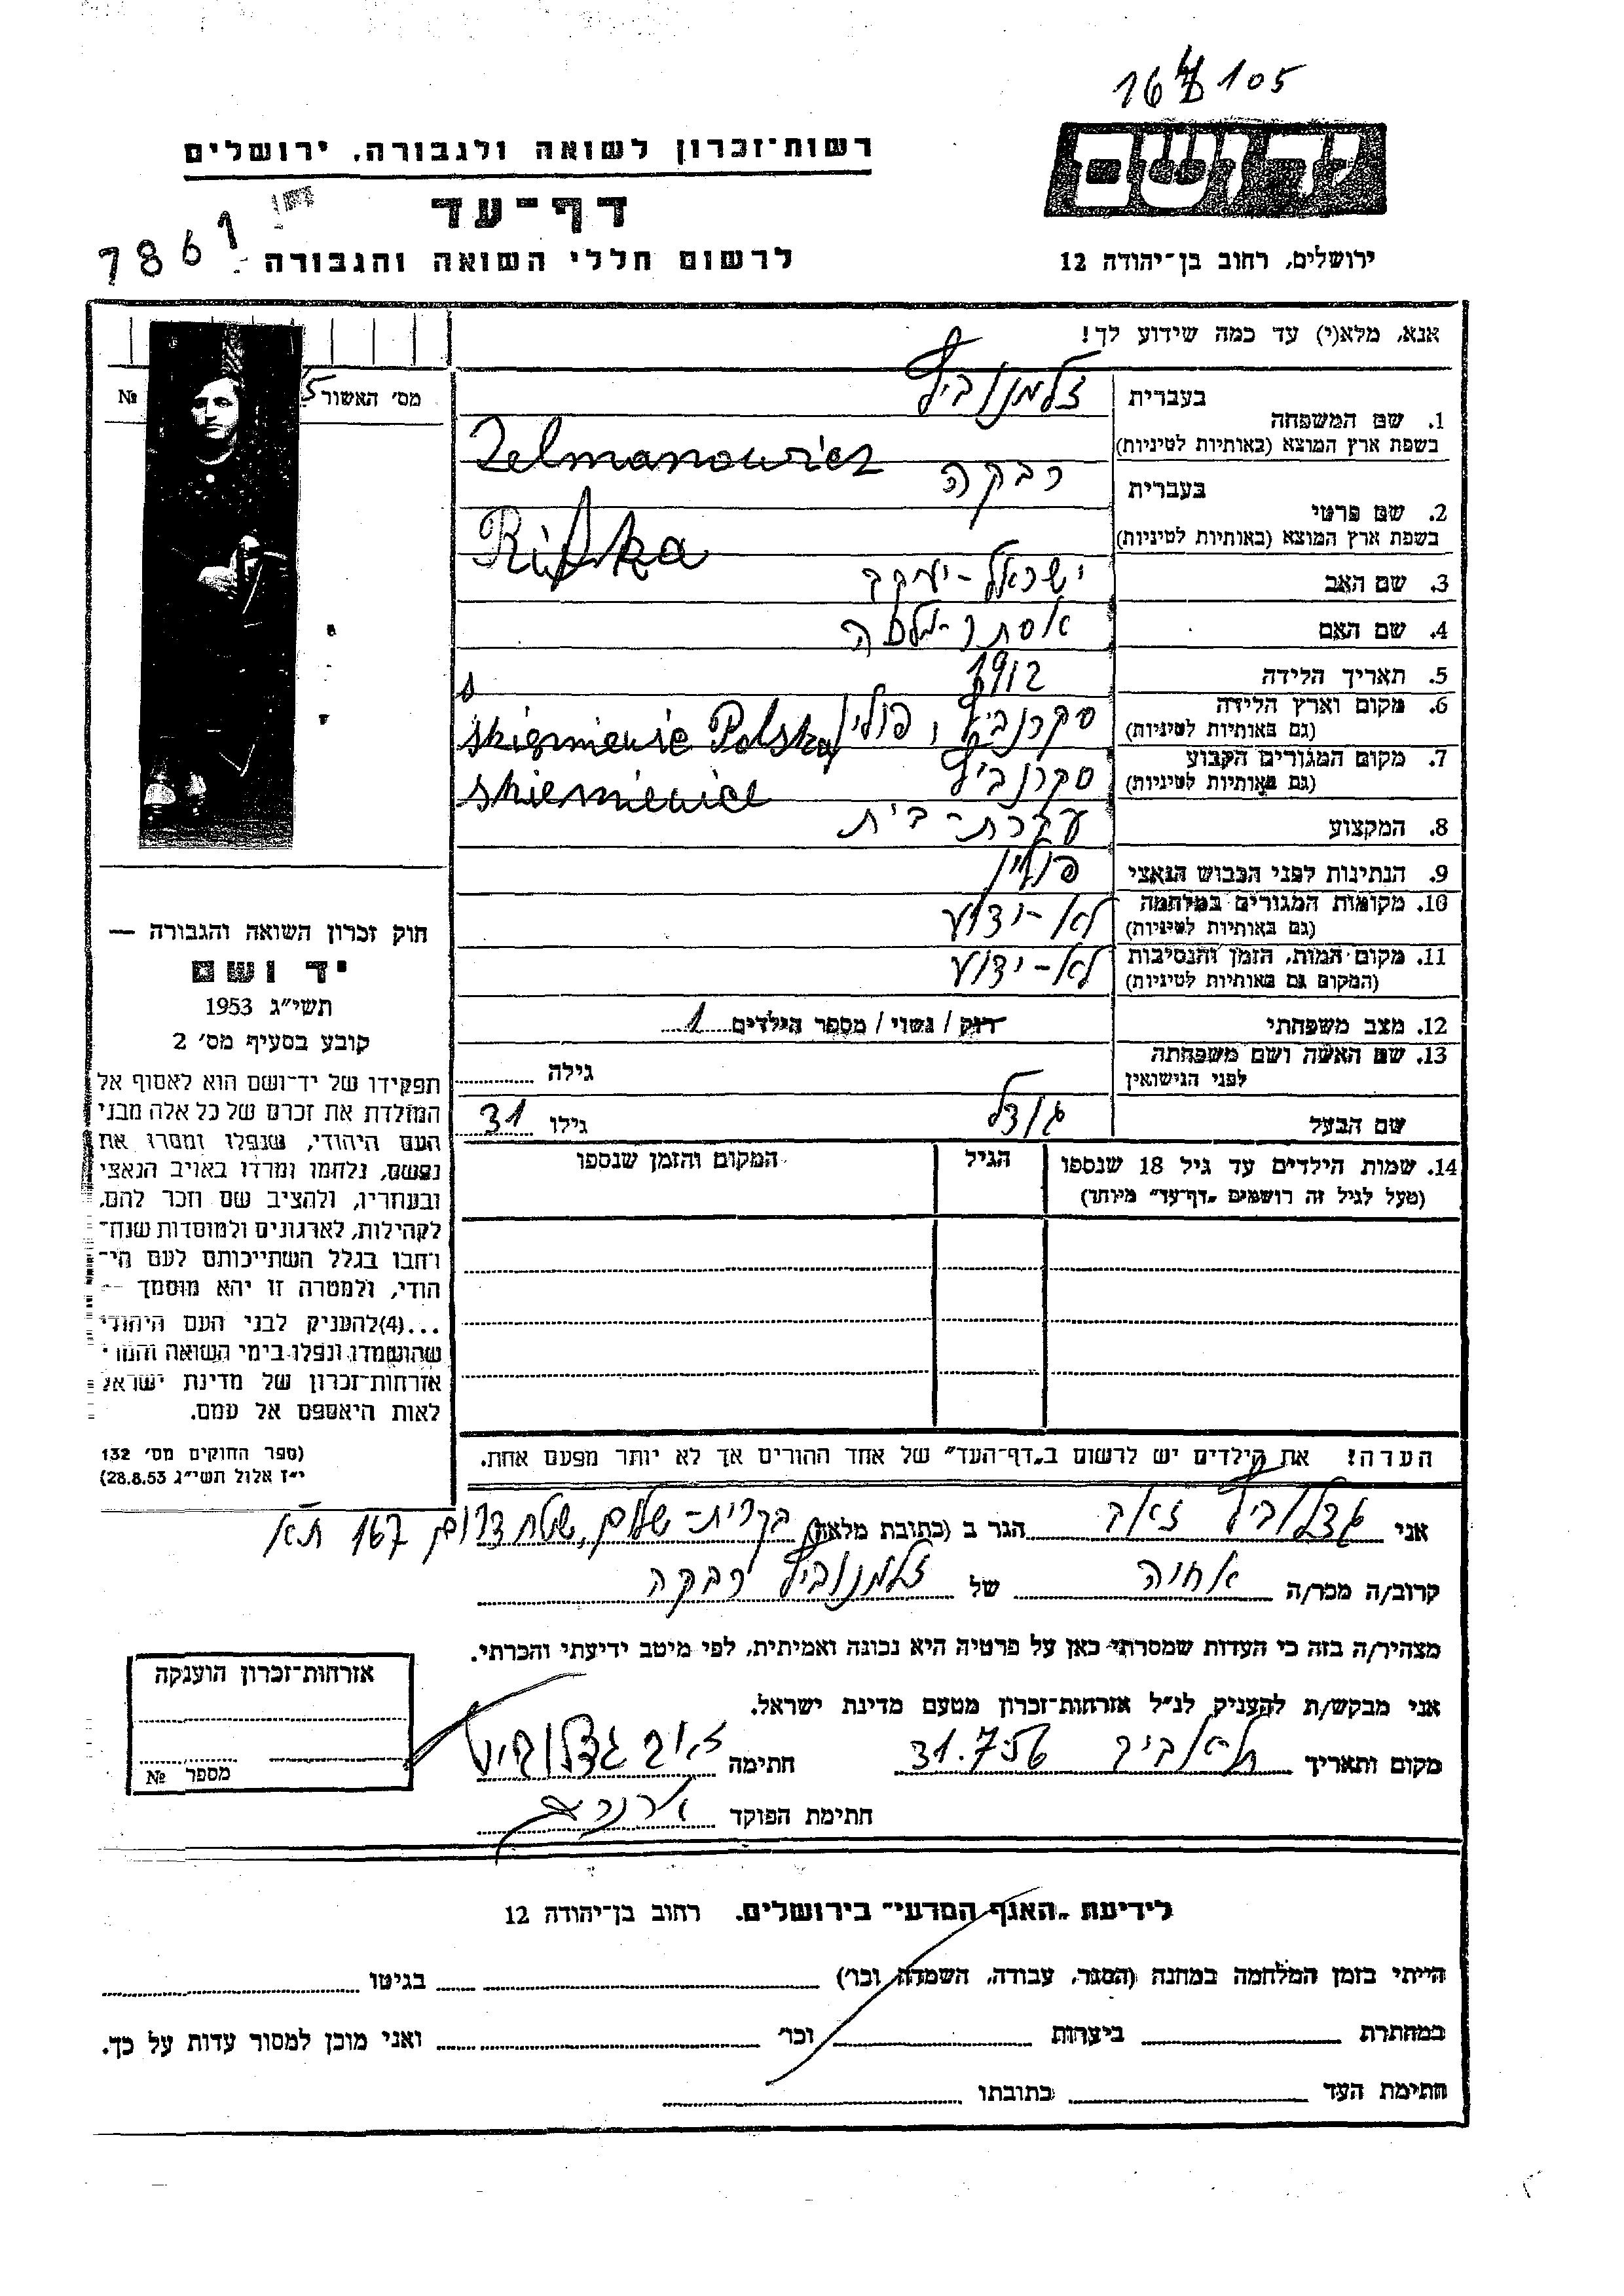 16 105
ידושם
רשות־זכרון לשואה ולגבורה, ירושלים
דף־עד
לרשום חללי השואה והגבורה
7861
ירושלים, רחוב בן־יהודה 12
אנא, מלא(י) עד כמה שידוע לך!
מס׳ האשור
№
בעברית
זלמנוביץ
1. שם המשפחה
בשפת ארץ המוצא (באותיות לטיניות)
Zelmanowicz
בעברית
רבקה
2. שם פרטי
בשפת ארץ המוצא (באותיות לטיניות)
Rifka
3. שם האב
ישראל-יעקב
4. שם האם
אסתר-מלכה
5. תאריך הלידה
1912
6. מקום וארץ הלידה
(גם באותיות לטיניות)
סקרנביץ, פולין
Skierniewice Polska
7. מקום המגורים הקבוע
(גם באותיות לטיניות)
סקרנביץ
Skierniewice
8. המקצוע
עקרת-בית
9. הנתינות לפני הכבוש הנאצי
פולין
10. מקומות המגורים במלחמה
(גם באותיות לטיניות)
לא-ידוע
11. מקום המות, הזמן והנסיבות
(המקום גם באותיות לטיניות)
לא-ידוע
12. מצב משפחתי
רוק / נשוי / מספר הילדים 1
13. שם האשה ושם משפחתה
לפני הנישואין
גילה
שם הבעל
גילו 31
14. שמות הילדים עד גיל 18 שנספו
(מעל לגיל זה רושמים „דף־עד” מיוחד)
הגיל
המקום והזמן שנספו
חוק זכרון השואה והגבורה —
יד ושם
תשי״ג 1953
קובע בסעיף מס׳ 2
תפקידו של יד־ושם הוא לאסוף אל
המולדת את זכרם של כל אלה מבני
העם היהודי, שנפלו ומסרו את
נפשם, נלחמו ומרדו באויב הנאצי
ובעוזריו, ולהציב שם וזכר להם,
לקהילות, לארגונים ולמוסדות שנח־
רבו בגלל השתייכותם לעם הי־
הודי, ולמטרה זו יהא מוסמך —
...(4)להעניק לבני העם היהודי
שהושמדו ונפלו בימי השואה והמרי
אזרחות־זכרון של מדינת ישראל
לאות היאספם אל עמם.
(ספר החוקים מס׳ 132
י״ז אלול תשי״ג 28.8.53)
הערה! את הילדים יש לרשום ב„דף־העד” של אחד ההורים אך לא יותר מפעם אחת.
אני גדלוביץ זאב הגר ב (כתובת מלאה) בקרית-שלום, שטח דרום 167 תא
קרוב/ה מכר/ה אחיה של זלמנוביץ רבקה
מצהיר/ה בזה כי העדות שמסרתי כאן על פרטיה היא נכונה ואמיתית, לפי מיטב ידיעתי והכרתי.
אני מבקש/ת להעניק לנ״ל אזרחות־זכרון מטעם מדינת ישראל.
מקום ותאריך תל אביב 31.7.56 חתימה זאב גדלוביץ
חתימת הפוקד
אזרחות־זכרון הוענקה
מספר №
לידיעת „האגף המדעי” בירושלים, רחוב בן־יהודה 12
הייתי בזמן המלחמה במחנה (הסגר, עבודה, השמדה וכו׳) בגיטו
במחתרת ביערות וכו׳ ואני מוכן למסור עדות על כך.
חתימת העד כתובתו